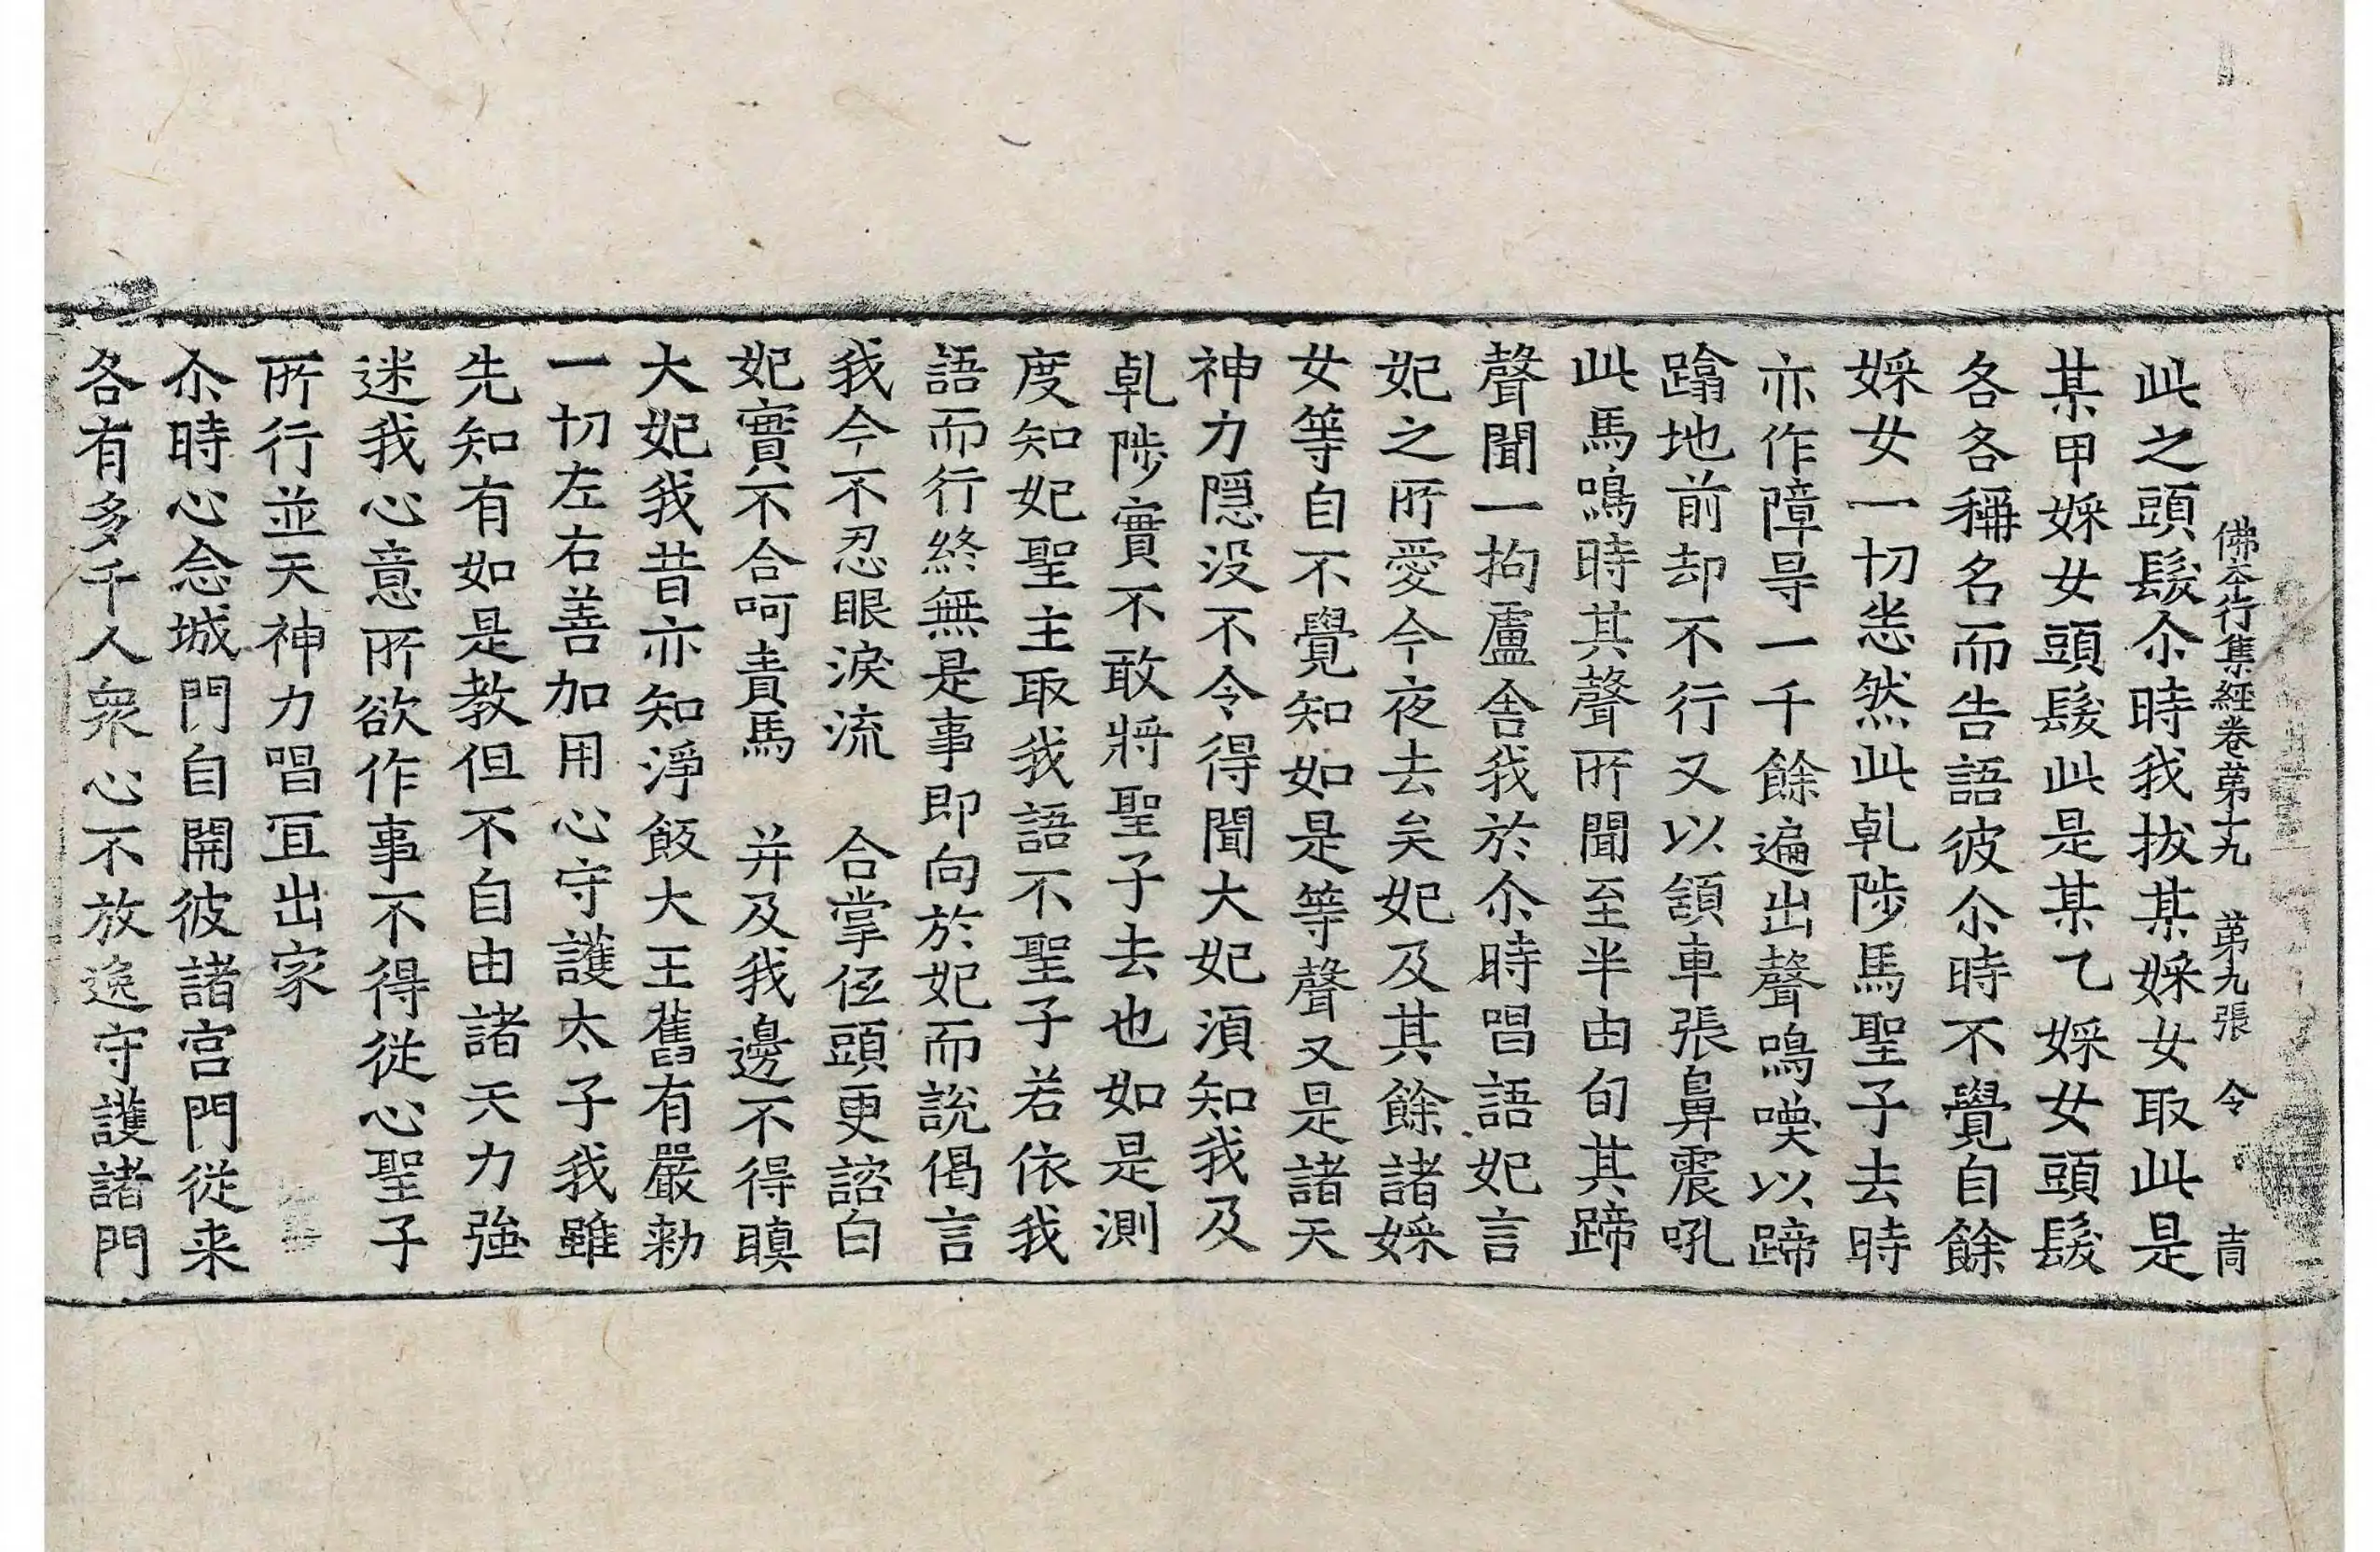 佛夲行集經卷苐十九　苐九張　令
此之頭髮尒時我拔某婇女取此是
某甲婇女頭髮此是某乙婇女頭髮
各各稱名而告語彼尒時不覺自餘
婇女一切恙然此乹陟馬聖子去時
亦作障㝵一千餘遍出聲鳴喚以蹄
蹹地前却不行又以頷車張鼻震吼
此馬鳴時其聲所聞至半由旬其蹄
聲聞一拘盧舍我於尒時唱語妃言
妃之所愛今夜去矣妃及其餘諸婇
女等自不覺知如是等聲又是諸天
神力隱没不令得聞大妃湏知我及
乹陟實不敢將聖子去也如是測
度知妃聖主取我語不聖子若依我
語而行終無是事即向於妃而說偈言
我今不忍眼淚流　合掌伭頭更諮白
妃實不合呵責馬　并及我邊不得瞋
大妃我昔亦知淨飯大王舊有嚴勑
一切左右善加用心守護太子我雖
先知有如是教但不自由諸天力強
迷我心意所欲作事不得從心聖子
所行並天神力唱冝出家
尒時心念城門自開彼諸宫門從来
各有多千人衆心不放逸守護諸門